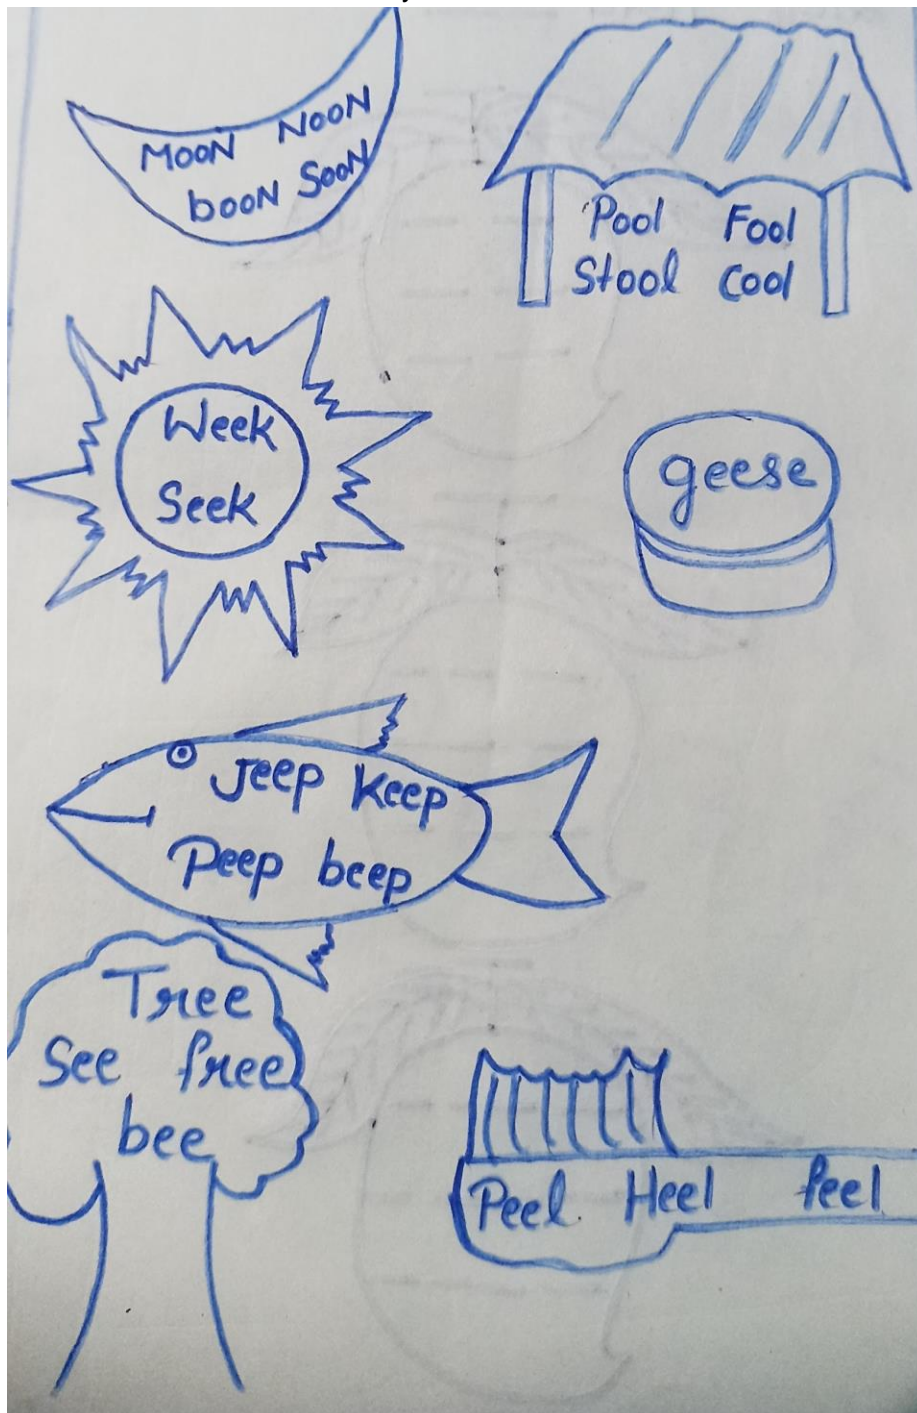 MOON NOON
bOON SOON
Pool Fool
Stool Cool
Week
Seek
geese
Jeep Keep
Peep beep
Tree
See free
bee
Peel Heel feel